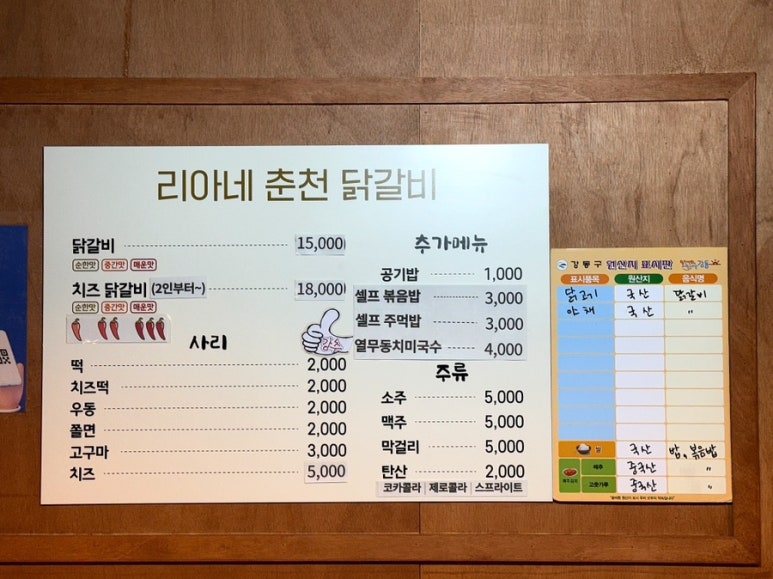 리아네 춘천 닭갈비
닭갈비 15,000
순한맛 중간맛 매운맛
치즈 닭갈비 (2인부터~) 18,000
순한맛 중간맛 매운맛
사리
강추
떡 2,000
치즈떡 2,000
우동 2,000
쫄면 2,000
고구마 3,000
치즈 5,000
추가메뉴
공기밥 1,000
셀프 볶음밥 3,000
셀프 주먹밥 3,000
열무동치미국수 4,000
주류
소주 5,000
맥주 5,000
막걸리 5,000
탄산 2,000
코카콜라 제로콜라 스프라이트
강동구 원산지 표시판
표시품목 원산지 음식명
닭고기 국산 닭갈비
야채 국산 〃
쌀 국산 밥, 볶음밥
배추 중국산 〃
고춧가루 중국산 〃